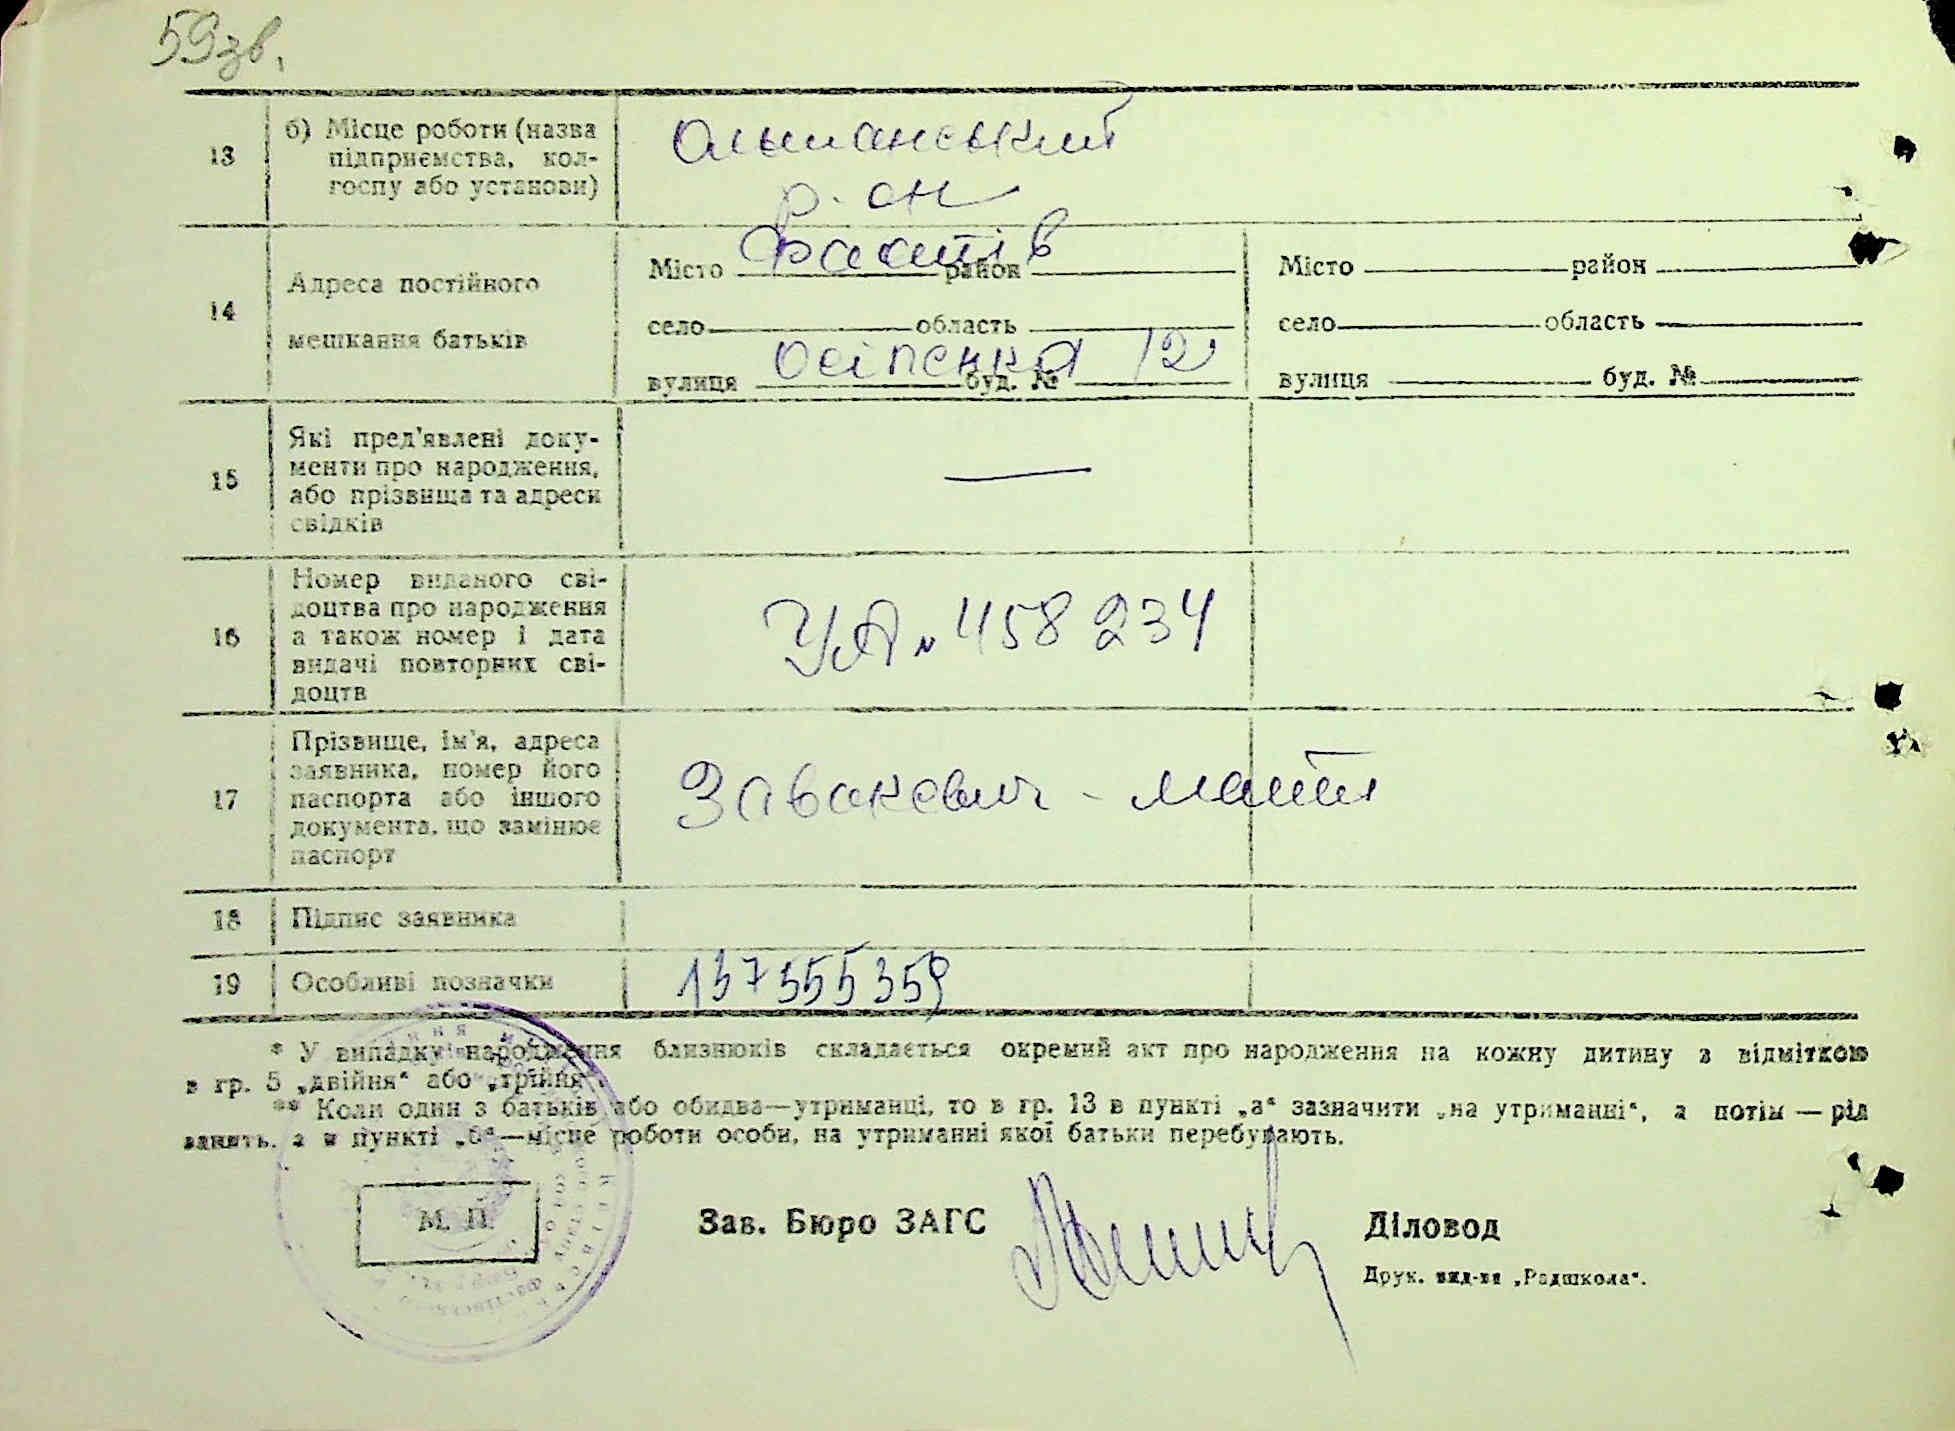 59зв.
13
б) Місце роботи (назва
підприємства, кол-
госпу або установи)
Ольшанський
р. он
14
Адреса постійного
мешкання батьків
Місто Фастів район
село область
вулиця Осіпенка буд. № 12
Місто район
село область
вулиця буд. №
15
Які пред'явлені доку-
менти про народження,
або прізвища та адреси
свідків
—
16
Номер виданого сві-
доцтва про народження
а також номер і дата
видачі повторних сві-
доцтв
УА № 458234
17
Прізвище, ім'я, адреса
заявника, номер його
паспорта або іншого
документа, що замінює
паспорт
Завакевич - мати
18 Підпис заявника
19 Особливі позначки 137555359
* У випадку народження близнюків складається окремий акт про народження на кожну дитину з відміткою
в гр. 5 „двійня“ або „трійня“.
** Коли один з батьків або обидва—утриманці, то в гр. 13 в пункті „а“ зазначити „на утриманні“, а потім — рід
занять, а в пункті „б“—місце роботи особи, на утриманні якої батьки перебувають.
М. П.
Зав. Бюро ЗАГС
Діловод
Друк. вид-ва „Радшкола“.